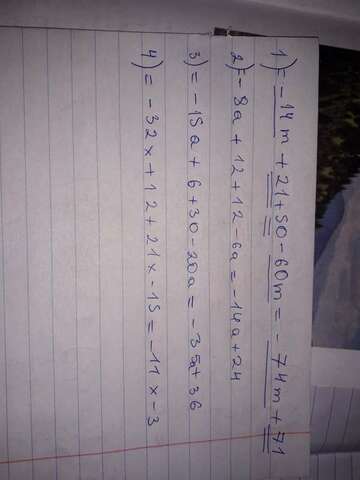 1) = -14m + 21 + 50 - 60m = -74m + 71
2) = -8a + 12 + 12 - 6a = -14a + 24
3) = -15a + 6 + 30 - 20a = -35a + 36
4) = -32x + 12 + 21x - 15 = -11x - 3